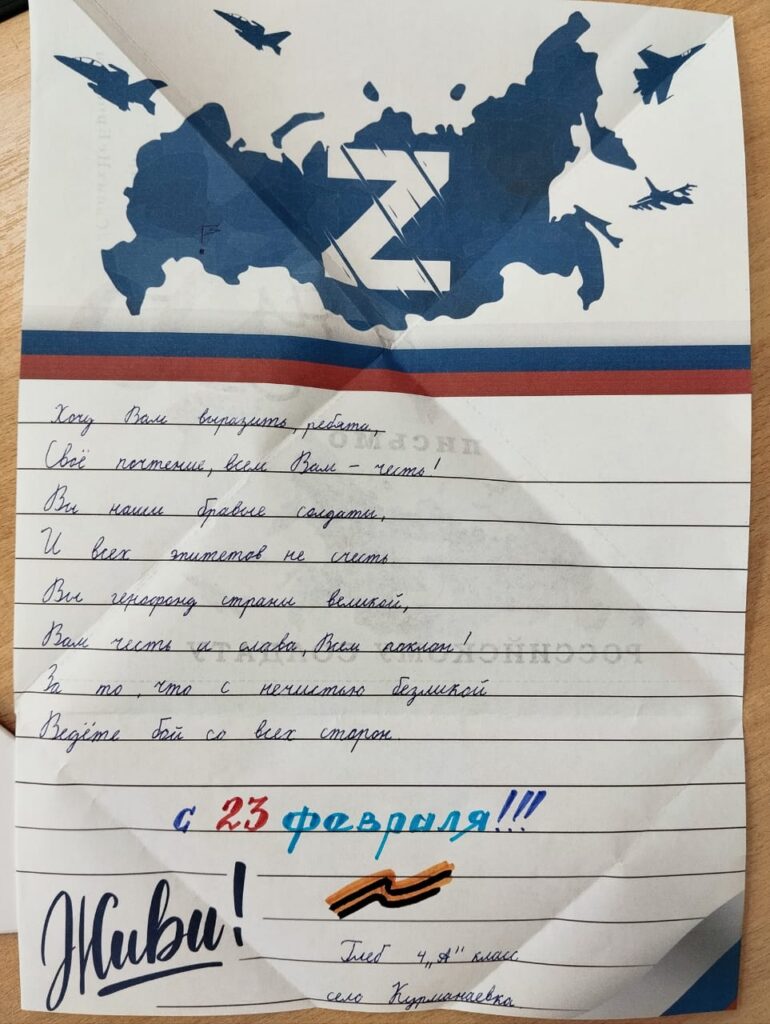 Z
Хочу Вам выразить, ребята,
Своё почтение, всем Вам – честь!
Вы наши бравые солдаты,
И всех эпитетов не счесть.
Вы генофонд страны великой,
Вам честь и слава, Всем поклон!
За то, что с нечистью безликой
Ведёте бой со всех сторон.
с 23 февраля!!!
Живи!
Глеб 4 „А" класс
село Курманаевка
ПИСЬМО
РОССИЙСКОМУ СОЛДАТУ